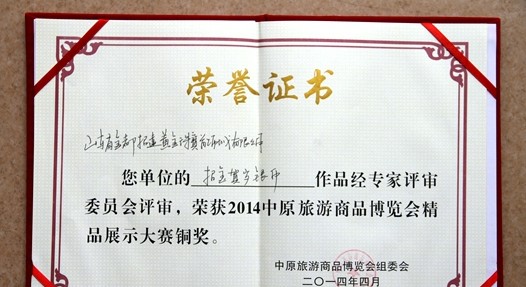 荣誉证书
山东省金都招远黄金珠宝首饰城有限公司
您单位的 招金贺岁银币 作品经专家评审
委员会评审，荣获2014中原旅游商品博览会精
品展示大赛铜奖。
中原旅游商品博览会组委会
二〇一四年四月